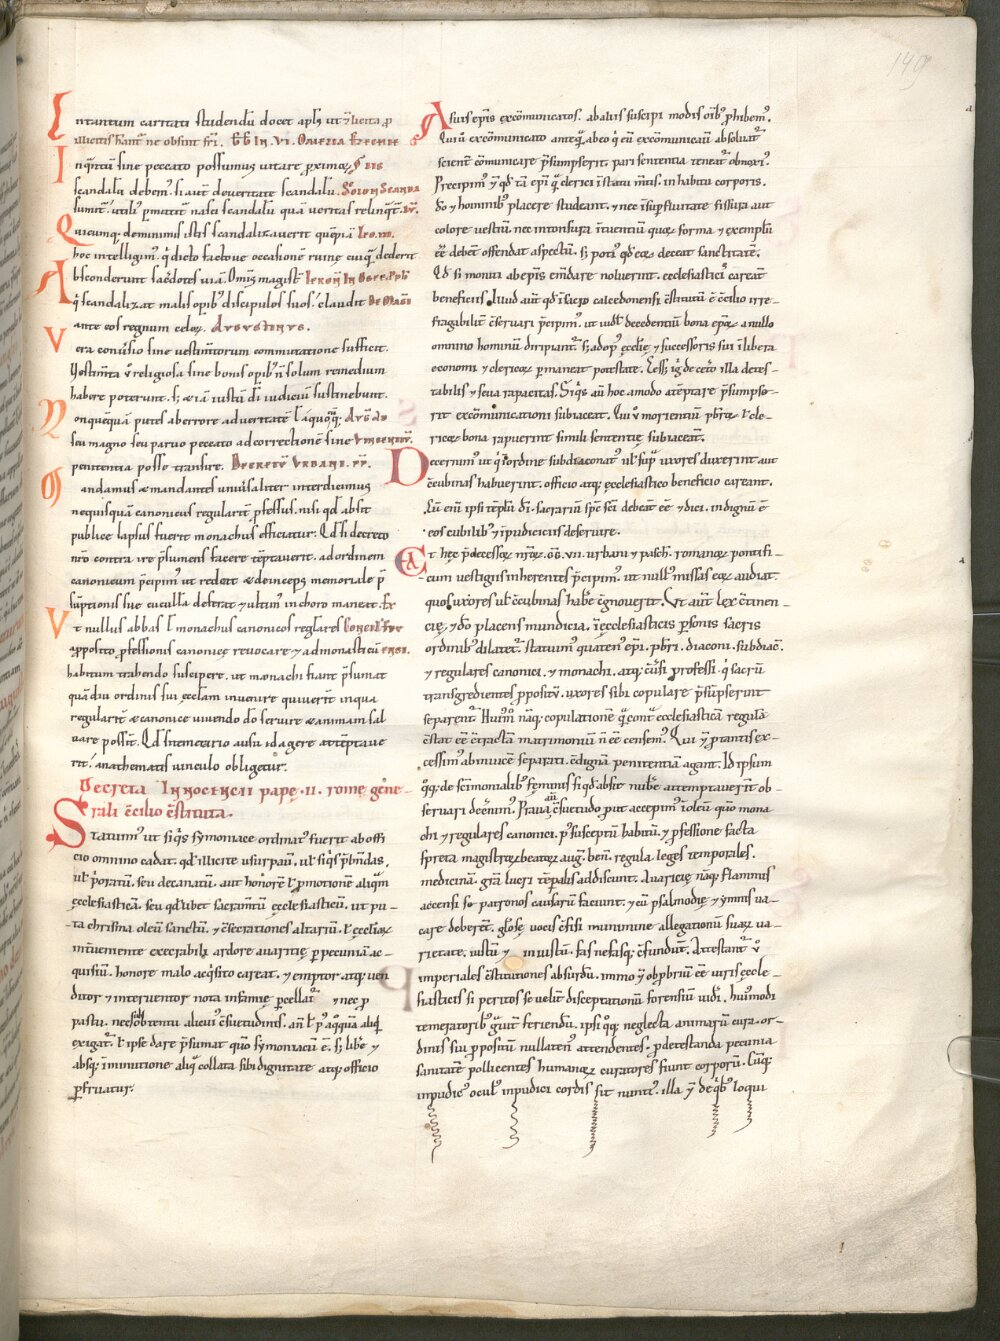 149
In tantum caritati studendū docet apłs ut & licita p
illicitis fiant ne obsint fri. GG IN. VI. OMELIA EZECHIE
In q̄ntū sine peccato possumus uitare proximoꝝ
scandalū debem᷒. si aut̄ de ueritate scandalū
sumit᷒. utili᷒ pmittit᷒ nasci scandalū quā ueritas relinq̄t᷒.
Quicumq; de minimis istis scandalizauerit quēpiā
hoc intelligim᷒. q dicto factoue occasionē ruine cuiq dederit
Absconderunt sacerdotes uiā. Omis magist̄
q scandalizat malis opib᷒ discipulos suos. claudit
ante eos regnum celoꝝ. AUGUSTINUS.
Vera conuersio sine uestimtorum commutatione sufficit.
Vestimta ū religiosa sine bonis opib᷒ n̄ solum remedium
habere poterunt. s; & iā iustū di iudiciū sustinebunt.
Nonquequā putes aberrore ad ueritatē l a quoq;
seu magno seu paruo peccato ad correctionē sine
penitentia posse transire. DECRETU URBANI. PP.
Mandamus & mandantes uniusaliter interdicimus
ne quisquā canonicus regularit̄ pfessus. nisi qd absit
publice lapsus fuerit monachus efficiatur. Qd si decreto
nr̄o contra ire psumens facere tēptauerit. ad ordinem
canonicum pcipim᷒ ut redeat & deinceps memoriale p
sūptionis sue cucullā deferat & ultim᷒ in choro maneat. Ex
Vt nullus abbas l monachus canonicos reglares
apposito pfessionis canonicę reuocare & ad monasticū
habitum trahendo suscipere. ut monachi fiant psumat
quādiu ordinis sui ęcclam inuenire quiuerit in qua
regularit̄ & canonice uiuendo do seruire & animam sal
uare possint. Qd si temerario ausu id agere attēptaue
rit. anathematis uinculo obligetur.
Decreta INNOCENCII papę. II. romę gene-
rali c̄cilio c̄stituta.
Statuim᷒ ut siq̄s symoniace ordinat᷒ fuerit ab offi
cio omnino cadat. qd illicite usurpauit. ul siq̄s pbendas,
ul pioratū. seu decanatū. aut honorē l pmotionē aliqm
ęcclesiasticā. seu qdlibet sacramtū ęcclesiasticū. ut pu-
ta chrisma oleū sanctū. & c̄secrationes altariū. l ęccliaꝝ
intueniente execrabili ardore auaritię p pecuniā ac
quisiuit. honore malo acq̄sito careat. & emptor atq; uen
ditor & interuentor nota infamię pcellat᷒ & nec p
pastu. nec sub obtentu alicui᷒ c̄suetudinis. an l p᷒ a quoquā aliqd
exigat᷒. l ipse dare psumat quō symoniacū ē. s; libe &
absq; iminutione aliq collata sibi dignitate atq; officio
pfruatur.
A suis epis excōmunicatos. ab aliis suscipi modis oīb᷒ phibem᷒.
Qui ū excōmunicato anteq ab eo q eū excōmunicauit absoluat᷒
scient̄ cōmunicare psumpserit. pari sententia teneat᷒ obnoxi᷒.
Precipim᷒ & qd tā epi q clerici in statu mtis. in habitu corporis.
do & hominib᷒ placere studeant. & nec in supfluitate scissura aut
colore uestiū nec in tonsura intuentiū quoꝝ forma & exemplū
ee debent offendat aspectū. s; poti᷒ qd eos deceat sanctitatē.
Qd si moniti ab epis emdare noluerint. ecclesiastici᷒ careant
beneficiis. Illud aut̄ qd in sacro calcedonensi c̄stitutū ē c̄cilio irre-
fragabilit̄ c̄seruari pcipim᷒. ut uidl decedentiū bona epoꝝ a nullo
omnino hominū diripiant᷒. s; ad op᷒ ęcclię & successoris sui in libera
economi & clericoꝝ pmaneat potestate. Cess; ig᷒ de cetō illa detes-
tabilis & seua rapacitas. Siq̄s aū hoc amodo atēptare psumpse-
rit excōmunicationi subiaceat. Qui ū morientiū pbroꝝ l cle-
ricoꝝ bona rapuerint simili sententię subiaceant.
Decernim᷒ ut q in ordine subdiaconat᷒ ul sup᷒ uxores duxerint aut
c̄cubinas habuerint. officio atq; ęcclesiastico beneficio careant.
Cū eni ipsi tēplū di. sacrariū spc sci debeāt ee & dici. indignū ē
eos cubilib᷒ & inpudiciciis deseruire.
Et hęc pdecessoꝝ nroꝝ. GG. VII. urbani & pasch. romanoꝝ pontifi-
cum uestigiis inherentes pcipim᷒. ut null᷒ missas eoꝝ audiat.
quos uxores ul c̄cubinas habe c̄gnouerit. Vt aut̄ lex c̄tinen-
cię. & do placens mundicia. in ecclesiasticis psonis & sacris
ordinib᷒ dilatet᷒. statuim᷒ quaten᷒ epi. pbri. diaconi. subdiac̄.
& regulares canonici. & monachi. atq; c̄uersi professi. q sacrū
transgredientes ppositū. uxores sibi copulare psūpserint
separent᷒. Hui᷒modi naq; copulationē q contra ecclesiasticā regulā
c̄stat ee c̄tractā matrimoniū n̄ ee censem᷒. Qui & p tantis ex-
cessib᷒ abinuicē separati. c̄dignā penitentiā agant. Id ipsum
qq; de sc̄imonialib᷒ feminis si qd absit nube attemptauerit ob-
seruari decnim᷒. Praua aū c̄suetudo put accepim᷒ inoleuit quō mona
chi & regulares canonici. p᷒ susceptū habitū. & pfessionē factā
spreta magistroꝝ beatoꝝ aug. ben. regula leges temporales.
& medicinā. grā lucri tēpalis addiscunt. Auaricię naq; flammis
accensi se patronos causarū faciunt. & cū psalmodię & ymnis ua-
care deberēt. gl̄ose uocis c̄fisi munimine allegationū suaꝝ ua-
rietate. iustū & iniustū. fas nefasq; c̄fundunt. Attestant᷒ ū
imperiales c̄stitutiones absurdū. immo & obpbriū ee uiris ęccle-
siasticis si peritos se uelint disceptationū forensiū uidi. hui᷒modi
temeratorib᷒ grauit̄ feriendū. ipsi qq; neglecta animarū cura. or-
dinis sui ppositū nullaten᷒ attendentes. p detestanda pecunia
sanitatē pollicentes humanoꝝ curatores fiunt corporū. Cūq;
inpudic᷒ ocul᷒ inpudici cordis sit nunti᷒. illa & de qb᷒ loqui